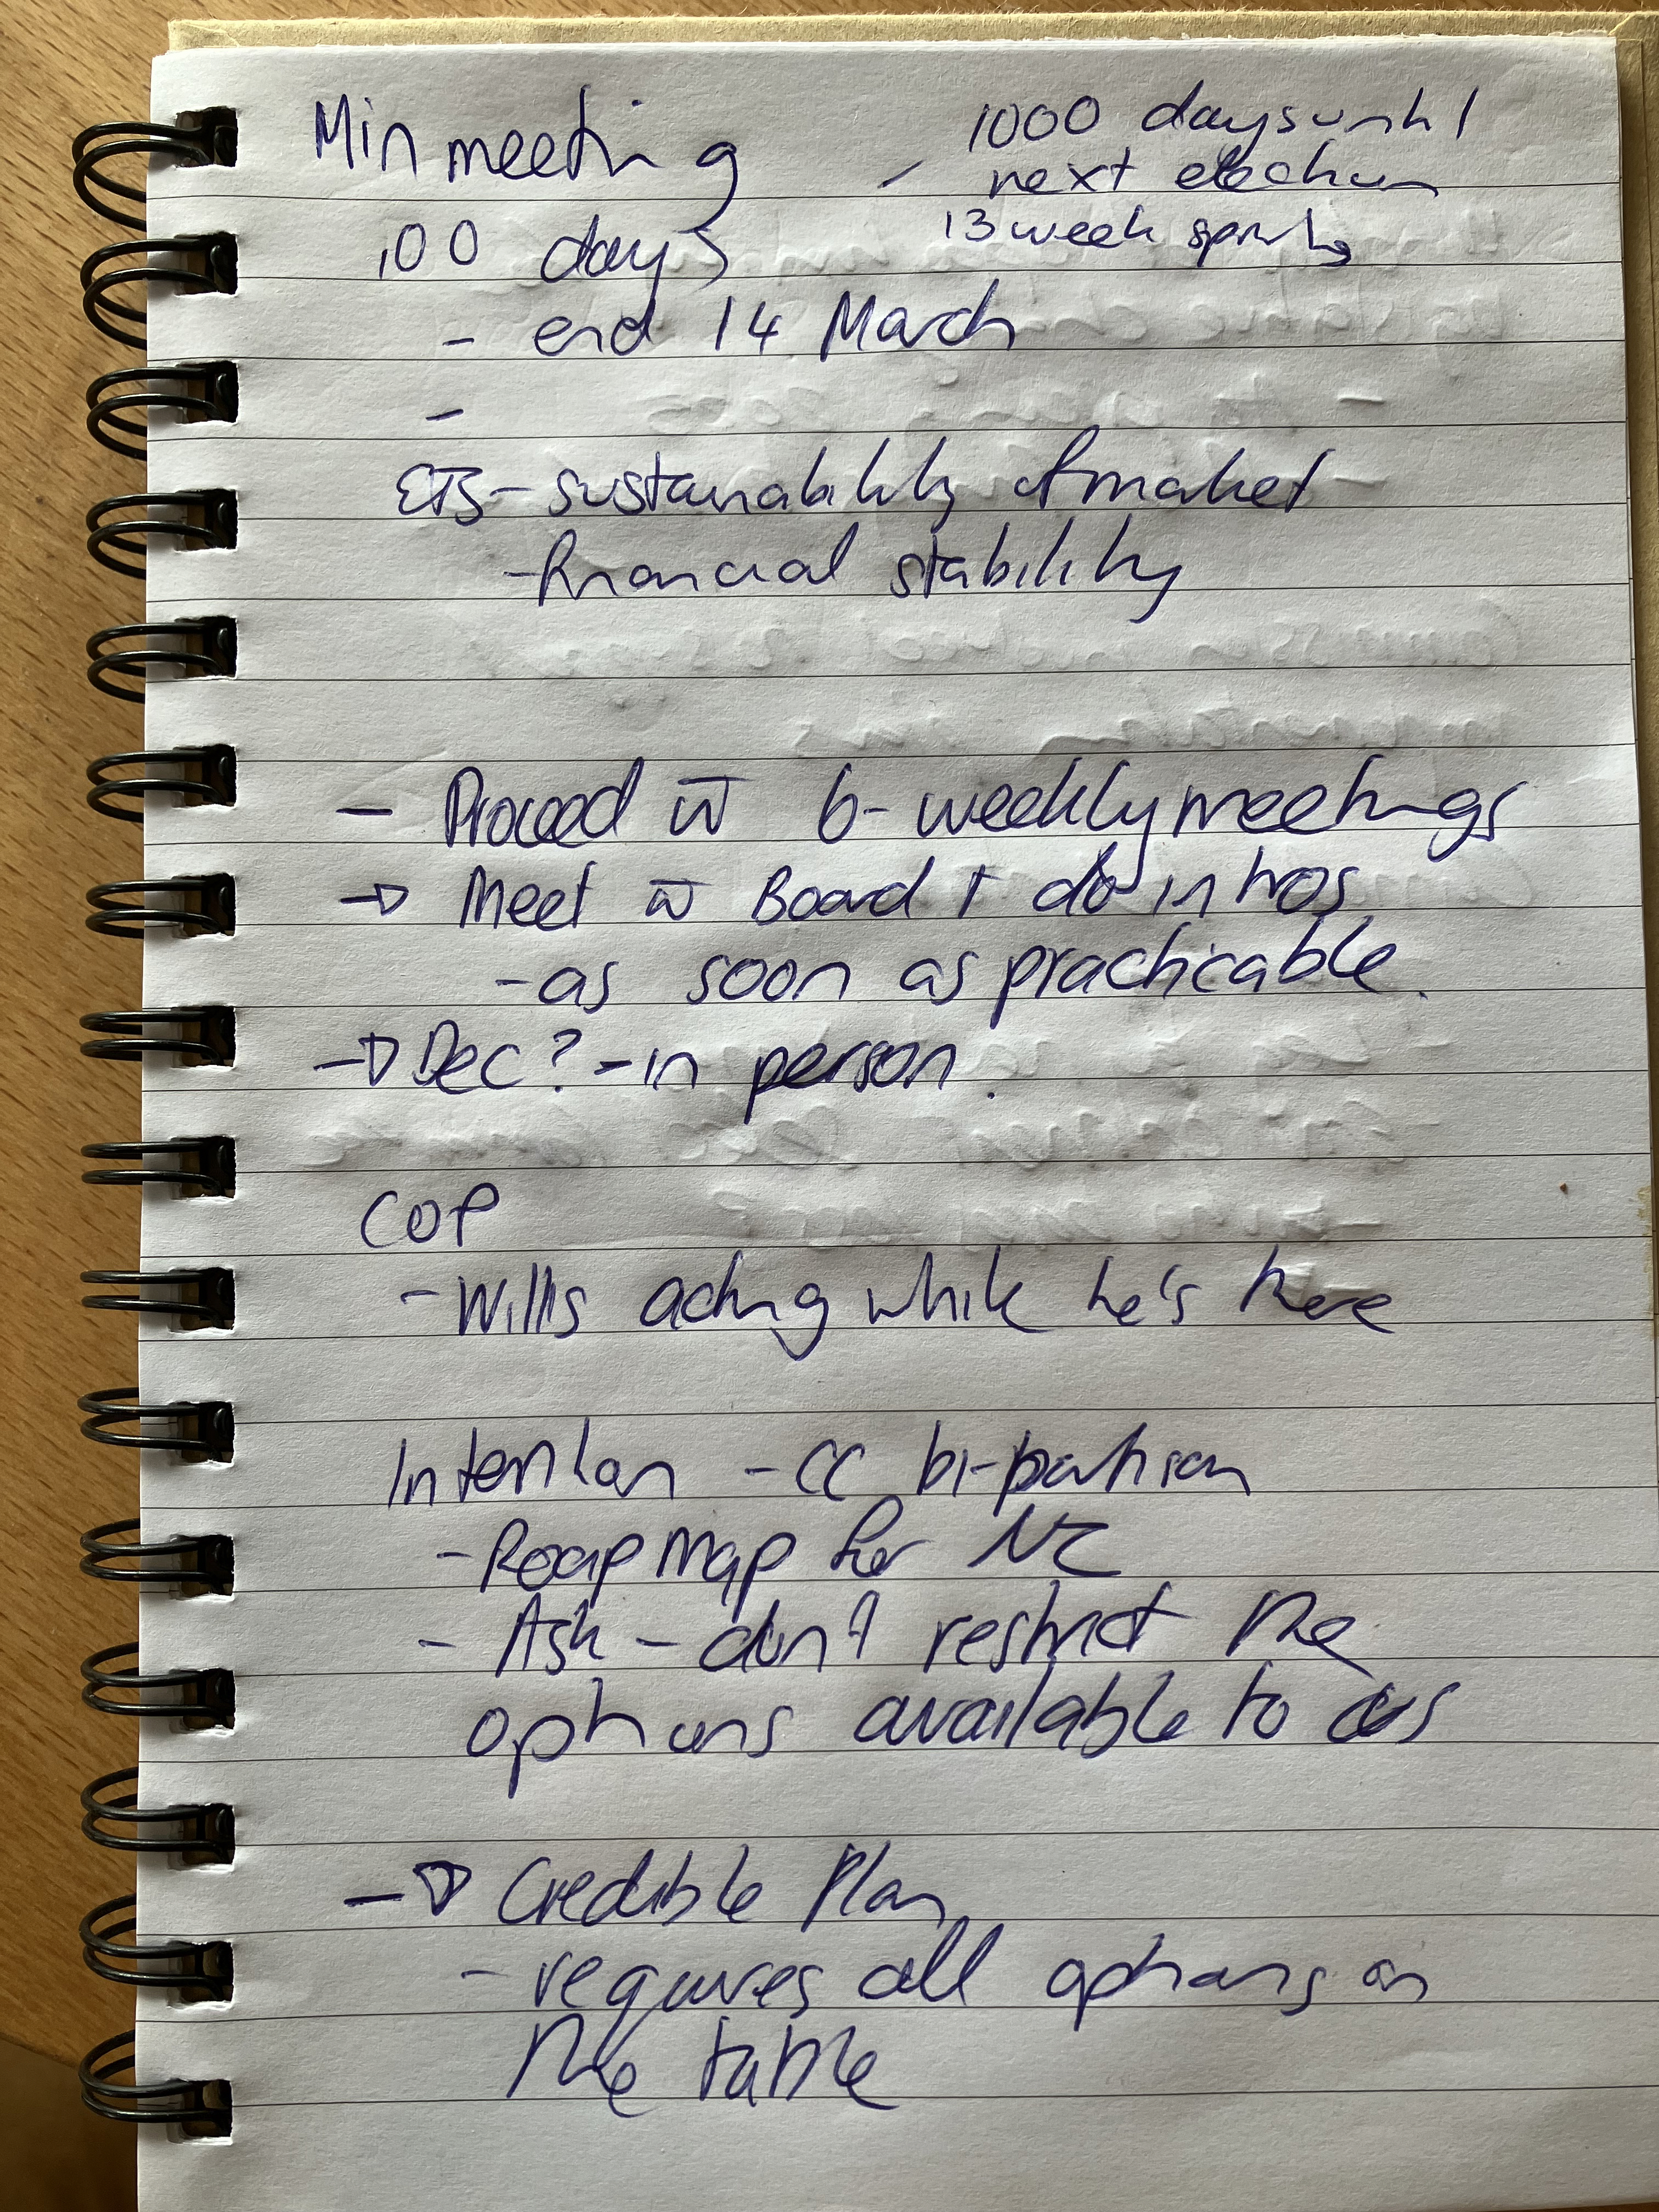 Min meeting
1000 days until
next election
13 week sprints
100 days
- end 14 March
-
ETS - sustainability of market
- financial stability
- Proceed w̄ 6-weekly meetings
→ Meet w̄ Board + do intros
- as soon as practicable.
→ Dec? - in person.
COP
- Willis acting while he's there
Intention - CC bi-partisan
- Roap map for NZ
- Ask - don't restrict the
options available to us
→ Credible Plan
- requires all options on
the table